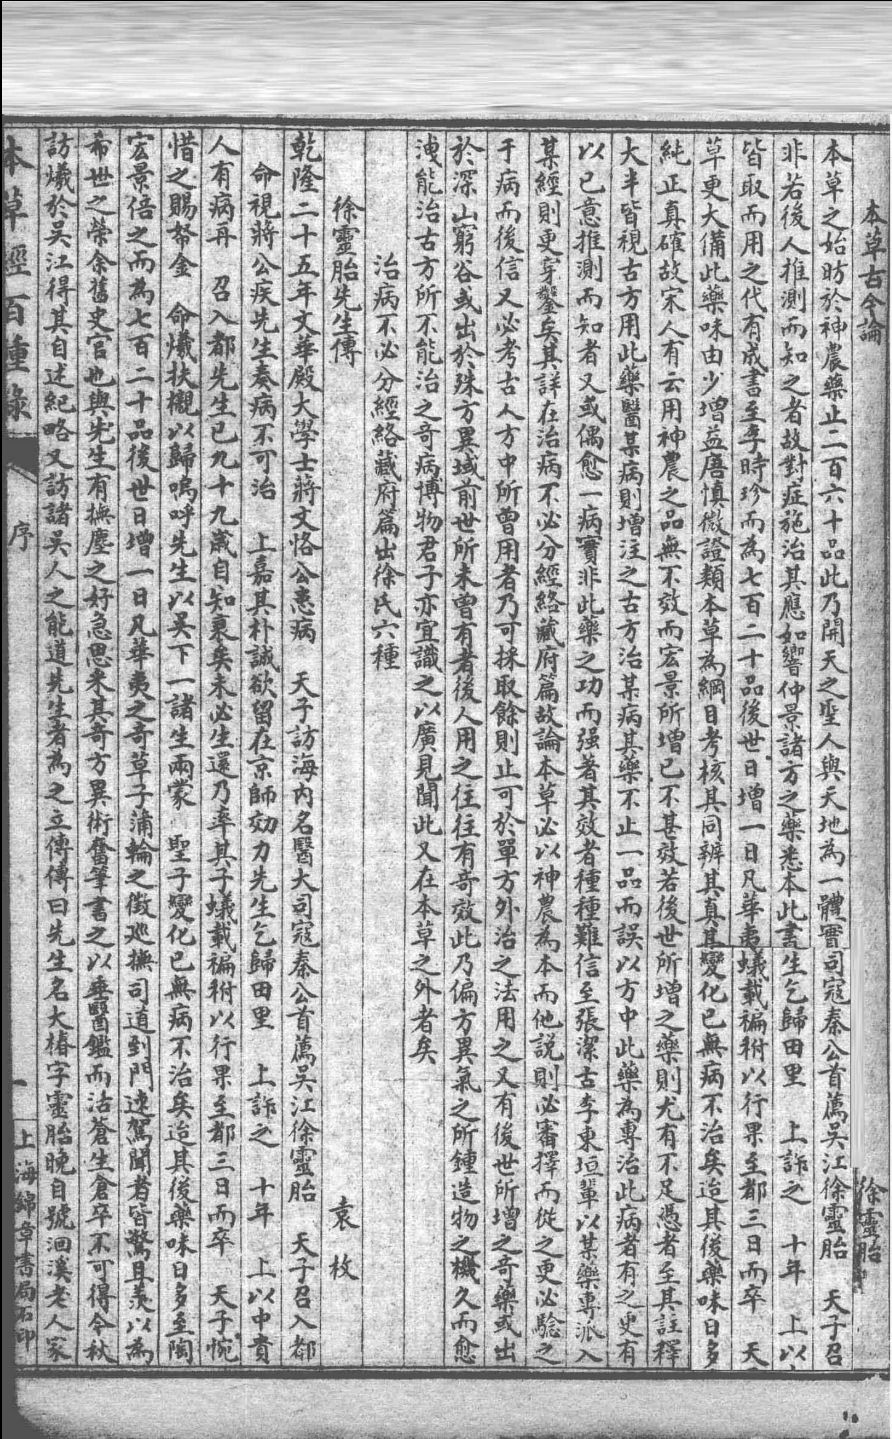 本草古今論 徐靈胎
本草之始昉於神農藥止二百六十品此乃開天之聖人與天地為一體實司寇秦公首薦吳江徐靈胎 天子召
非若後人推測而知之者故對症施治其應如響仲景諸方之藥悉本此書生乞歸田里 上詐之 十年 上以
皆取而用之代有成書至李時珍而為七百二十品後世日增一日凡華夷蟻載楄柎以行果至都三日而卒 天
草更大備此藥味由少增益唐慎微證類本草為綱目考核其同辨其真其變化已無病不治矣迨其後藥味日多
純正真確故宋人有云用神農之品無不效而宏景所增已不甚效若後世所增之藥則尤有不足憑者至其註釋
大半皆視古方用此藥醫某病則增注之古方治某病其藥不止一品而誤以方中此藥為專治此病者有之更有
以己意推測而知者又或偶愈一病實非此藥之功而强著其效者種種難信至張潔古李東垣輩以某藥專派入
某經則更穿鑿矣其詳在治病不必分經絡藏府篇故論本草必以神農為本而他說則必審擇而從之更必驗之
于病而後信又必考古人方中所曾用者乃可採取餘則止可於單方外治之法用之又有後世所增之奇藥或出
於深山窮谷或出於殊方異域前世所未曾有者後人用之往往有奇效此乃偏方異氣之所鍾造物之機久而愈
洩能治古方所不能治之奇病博物君子亦宜識之以廣見聞此又在本草之外者矣
治病不必分經絡藏府篇出徐氏六種
徐靈胎先生傳 袁枚
乾隆二十五年文華殿大學士蔣文恪公患病 天子訪海內名醫大司寇秦公首薦吳江徐靈胎 天子召入都
命視蔣公疾先生奏病不可治 上嘉其朴誠欲留在京師効力先生乞歸田里 上詐之 十年 上以中貴
人有病再 召入都先生已九十九歲自知衰矣未必生還乃率其子蟻載楄柎以行果至都三日而卒 天子惋
惜之賜帑金 命爔扶櫬以歸嗚呼先生以吳下一諸生兩蒙 聖子變化已無病不治矣迨其後藥味日多至陶
宏景倍之而為七百二十品後世日增一日凡華夷之奇草子蒲輪之徵巡撫司道到門速駕聞者皆驚且羨以為
希世之榮余舊史官也與先生有撫塵之好急思采其奇方異術奮筆書之以垂醫鑑而活蒼生倉卒不可得今秋
訪爔於吳江得其自述紀略又訪諸吳人之能道先生者為之立傳傳曰先生名大椿字靈胎晚自號洄溪老人家
本草經百種錄 序 一 上海錦章書局石印